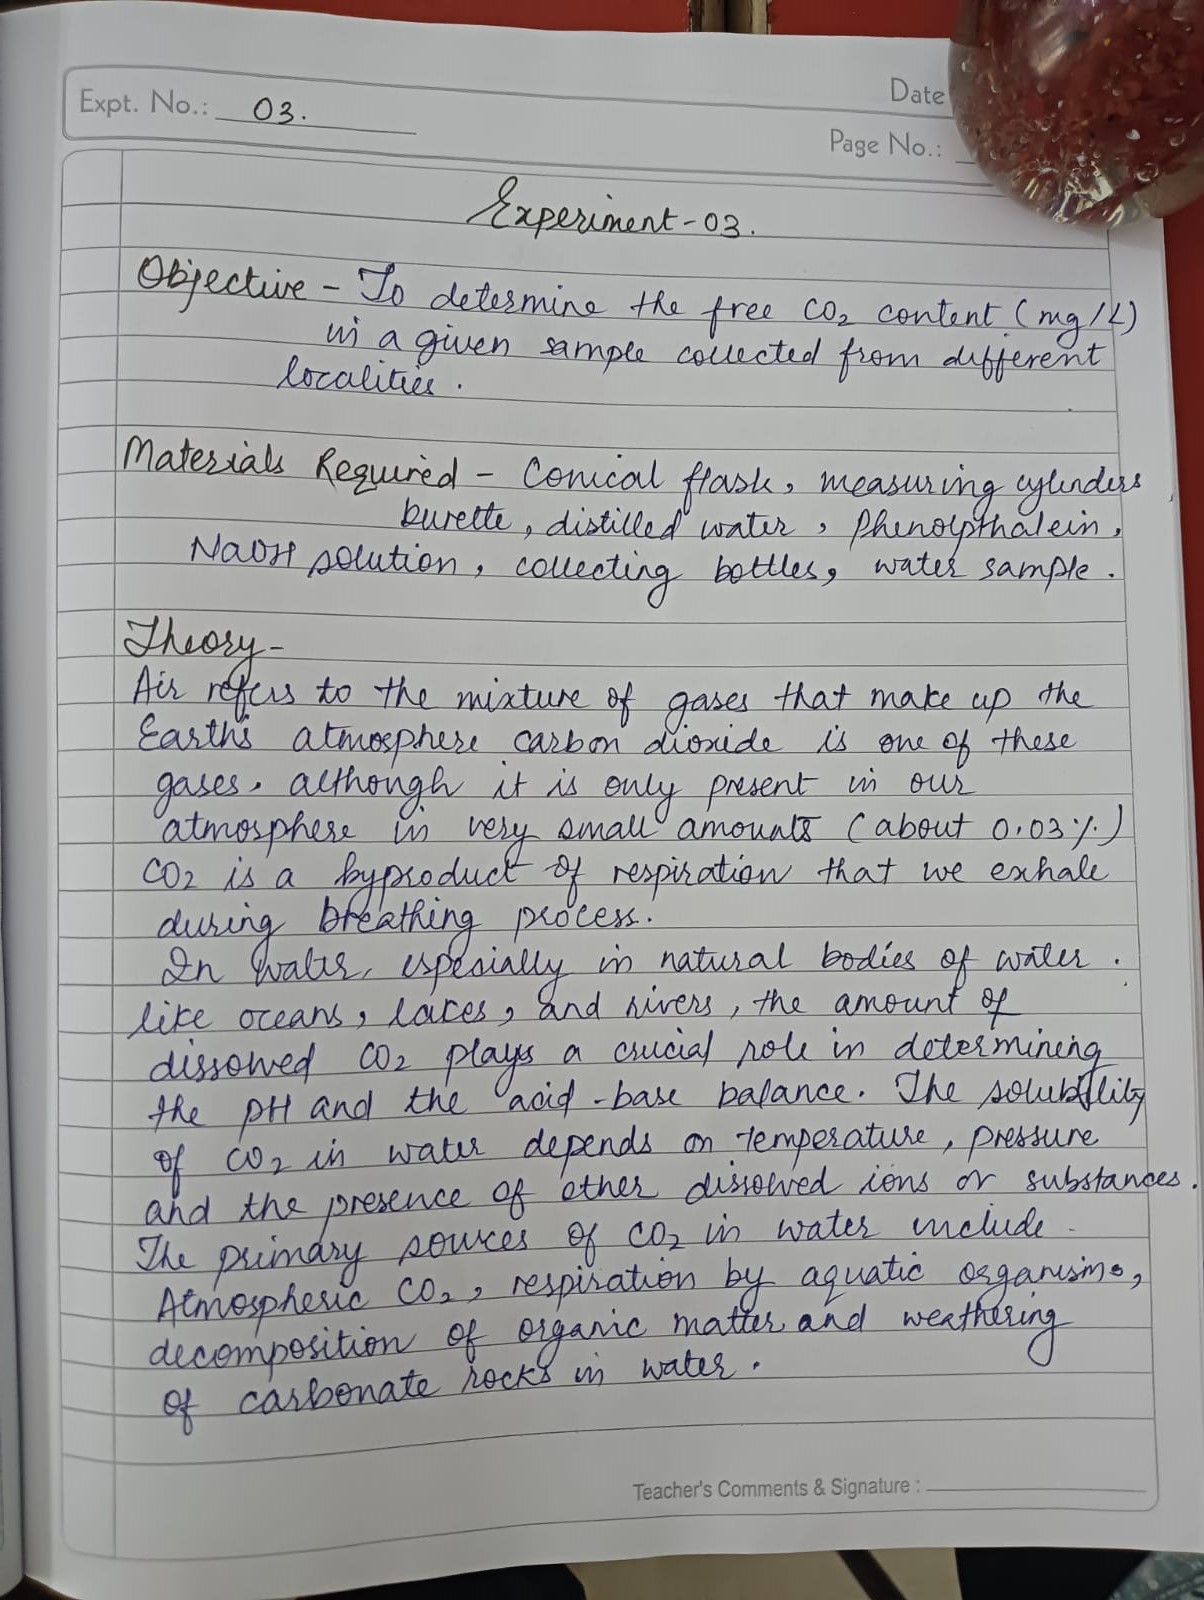 Date
Expt. No.: 03.
Page No.:
Experiment-03.
Objective - To determine the free CO2 content (mg/L)
in a given sample collected from different
localities.
Materials Required - Conical flask, measuring cylinders
burette, distilled water, Phenolpthalein,
NaOH solution, collecting bottles, water sample.
Theory-
Air refers to the mixture of gases that make up the
Earth's atmosphere carbon dioxide is one of these
gases. although it is only present in our
atmosphere in very small amounts (about 0.03%)
CO2 is a byproduct of respiration that we exhale
during breathing process.
In water, especially in natural bodies of water.
like oceans, lakes, and rivers, the amount of
dissolved CO2 plays a crucial role in determining
the pH and the acid-base balance. The solubility
of CO2 in water depends on temperature, pressure
and the presence of other dissolved ions or substances.
The primary sources of CO2 in water include
Atmospheric CO2, respiration by aquatic organisms,
decomposition of organic matter and weathering
of carbonate rocks in water.
Teacher's Comments & Signature :